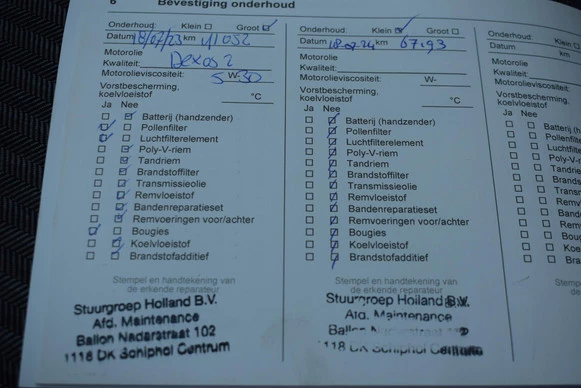 6 Bevestiging onderhoud
Onderhoud: Klein Groot
Datum 18/07/23 km 41052
Motorolie
Kwaliteit: Dexos 2
Motorolieviscositeit: 5 W-30
Vorstbescherming,
koelvloeistof °C
Ja Nee
Batterij (handzender)
Pollenfilter
Luchtfilterelement
Poly-V-riem
Tandriem
Brandstoffilter
Transmissieolie
Remvloeistof
Bandenreparatieset
Remvoeringen voor/achter
Bougies
Koelvloeistof
Brandstofadditief
Stempel en handtekening van
de erkende reparateur
Stuurgroep Holland B.V.
Afd. Maintenance
Ballon Nadarstraat 102
1118 DK Schiphol Centrum
Onderhoud: Klein Groot
Datum km
Motorolie
Kwaliteit:
Motorolieviscositeit: W-
Vorstbescherming,
koelvloeistof °C
Ja Nee
Batterij (handzender)
Pollenfilter
Luchtfilterelement
Poly-V-riem
Tandriem
Brandstoffilter
Transmissieolie
Remvloeistof
Bandenreparatieset
Remvoeringen voor/achter
Bougies
Koelvloeistof
Brandstofadditief
Stempel en handtekening van
de erkende reparateur
Stuurgroep Holland B.V.
Afd. Maintenance
Ballon
118 DK Schiphol Centrum
Onderhoud:
Datum km
Motorolie
Kwaliteit:
Motorolieviscositeit:
Vorstbescherming,
koelvloeistof
Ja Nee
Batterij (h
Pollenfilte
Luchtfilte
Poly-V-r
Tandrie
Brands
Trans
Remv
Band
Rem
Bou
Koe
Bra